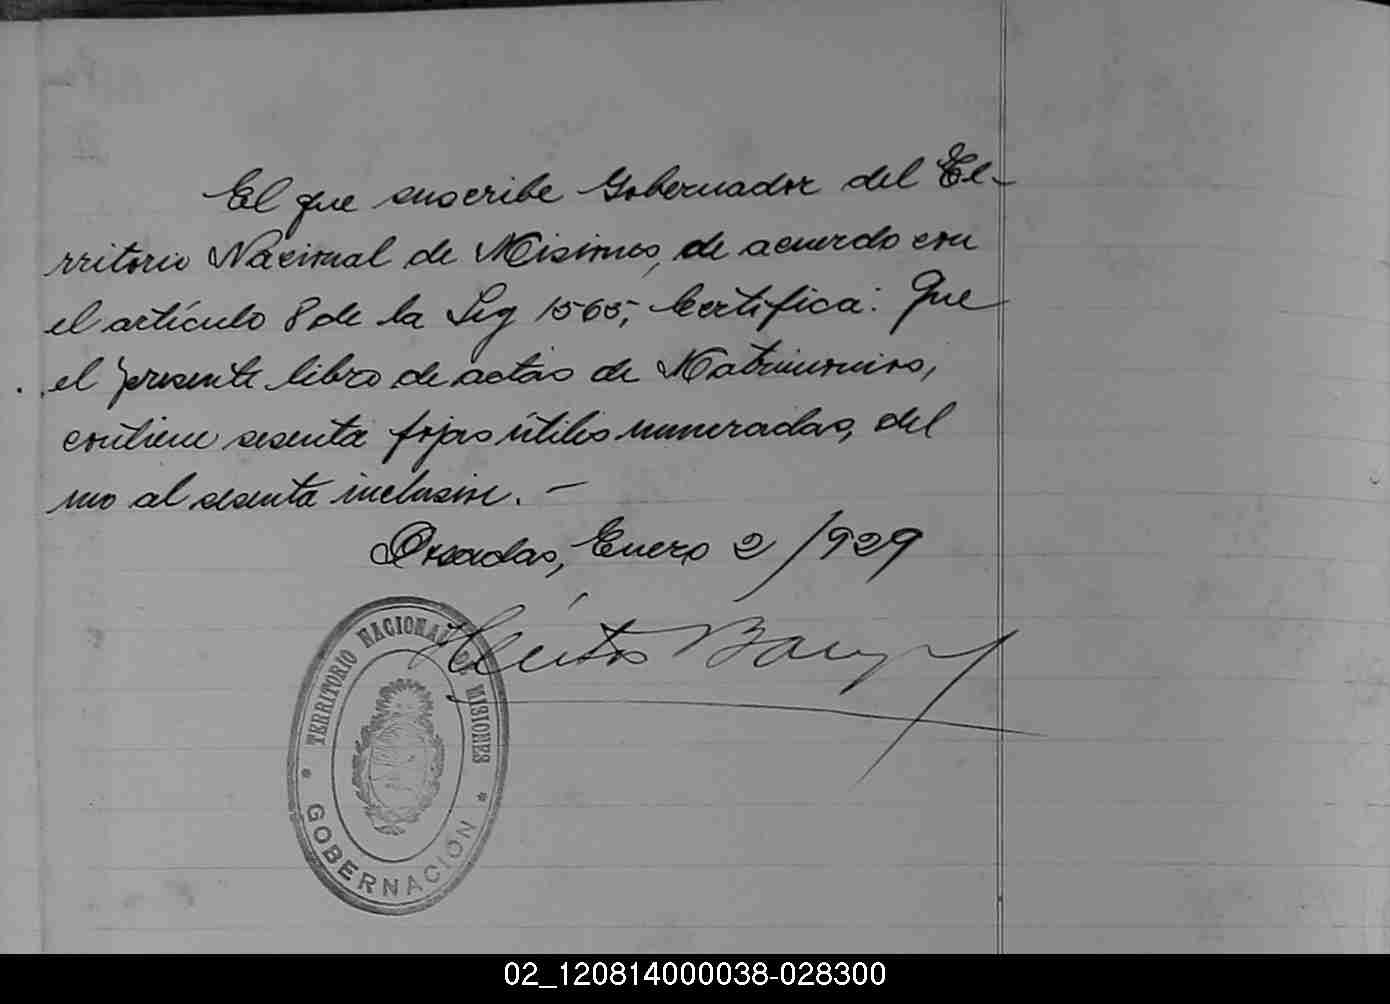 El que suscribe Gobernador del Te-
rritorio Nacional de Misiones, de acuerdo con
el artículo 8 de la Ley 1565, Certifica: Que
el presente libro de actas de Matrimonios,
contiene sesenta fojas útiles numeradas, del
uno al sesenta inclusive. —
Posadas, Enero 2/929
Héctor
TERRITORIO NACIONAL DE MISIONES
GOBERNACIÓN
02_120814000038-028300